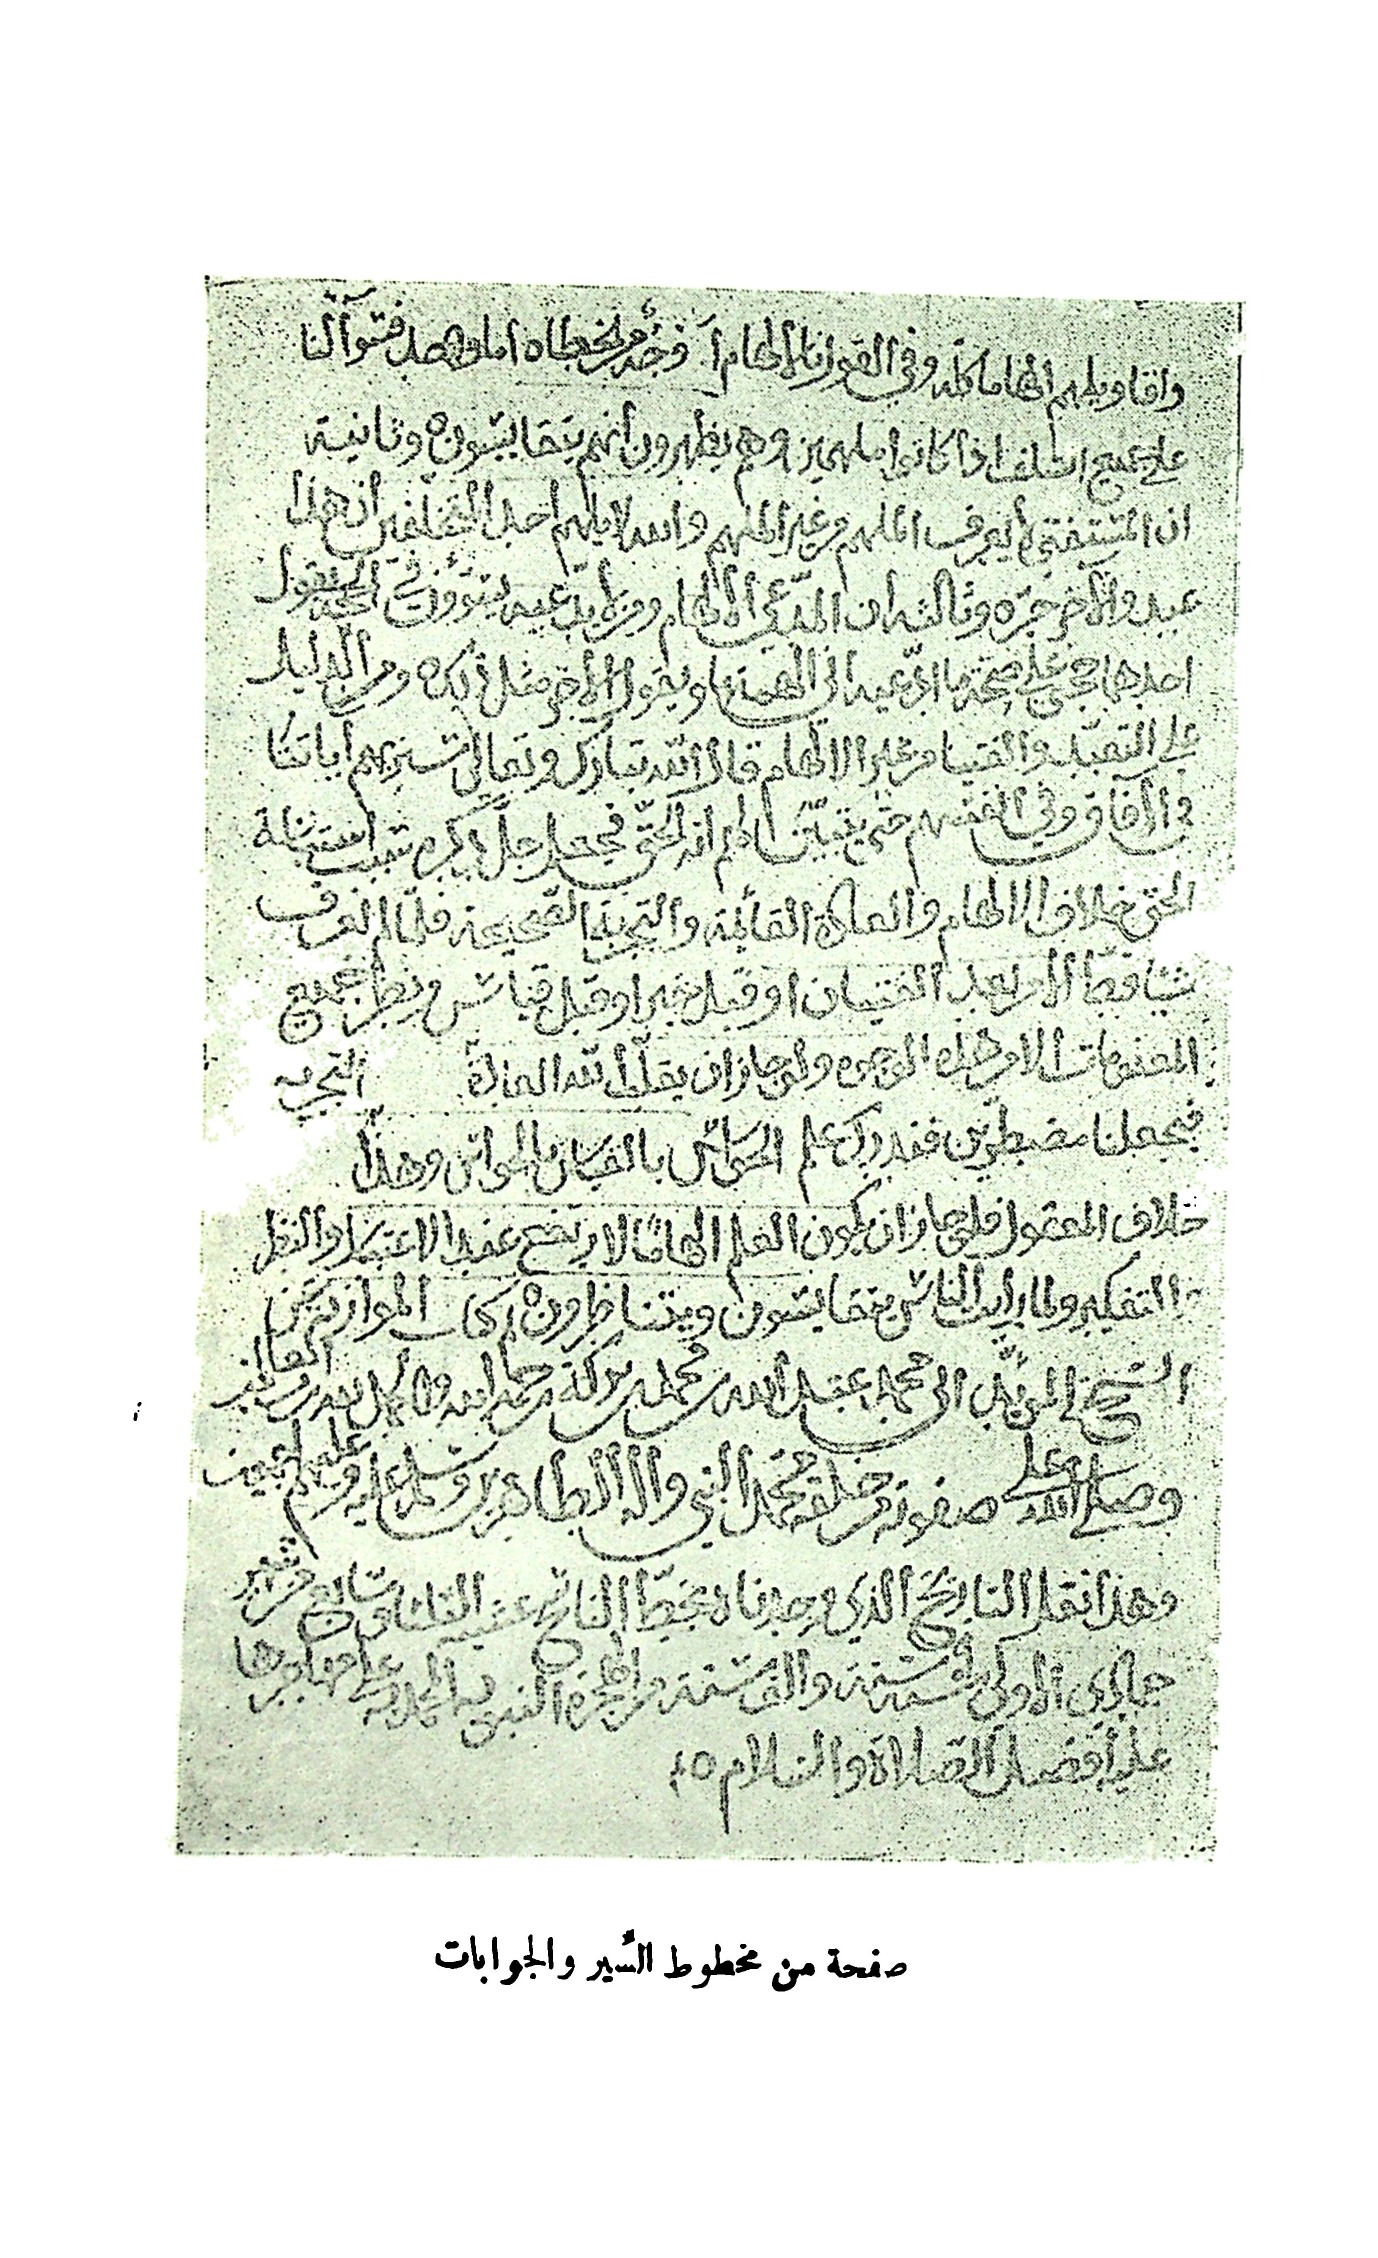 واقاويلهم الهاما كله وفي القول بالالهام أوجه من الخطأ ه اما وهمهد فتوآلنا
على جميع السلف اذا كانوا ملهمين وهم يظهرون أنهم يتقايسون ه وثانية
ان المستفتي لا يعرف الملهم من غير الملهم والله لا يلهم احد المختلفين ان هذا
عبد والآخر حره وثالثه ان المدعي الالهام ومن لا يدعيه يستوون في الحجه فيقول
احدها حجتي على صحة ما ادعيه اني الهمتها ويقول الآخر مثل ذلك ه ومن الدليل
على التعبد والفتيا من غير الالهام قال الله تبارك وتعالى سنريهم آياتنا
في الآفاق وفي انفسهم حتى يتبين لهم انه الحق فجعل جل ذكره سبب استبانة
الحق خلاف الالهام والعادة القائمة والتجربة الصحيحة فلما لم نعرف
ساقط الا بعد العيان او قبل خبر او قبل قياس وبطر جميع
المعلومات الا من هذه الوجوه ولو جاز ان يقلب الله العادة التجربه
فيجعلنا مضطرين فندرك علم الحواس بالقياس بالحواس وهذا
خلاف المعقول فلو جاز ان يكون العلم الهاما لا يرتفع عند الاعتماد والنظر
والتفكير ولما رأيت الناس يتقايسون ويتناظرون ه تم كتاب الموازنة عن
الشيخ ابي محمد عبد الله بن محمد بن بركة رحمه الله والحمد لله رب العالمين
وصلى الله على صفوته من خلقه محمد النبي وآله الطاهرين وسلم عليه وعليهم اجمعين
وهذا نقل التاريخ الذي وجدناه بخط الناسخ عشية الثلثا سابع من شهر
جمادى الاولى سنة والف سنة من الهجرة النبويه المحمديه على مهاجرها
عليه أفضل الصلاة والسلام
صفحة من مخطوط السير والجوابات